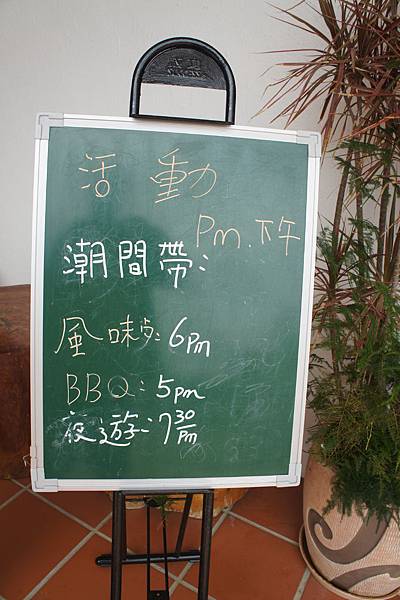 活動
Pm.下午
潮間帶:
風味步: 6pm
BBQ: 5pm
夜遊: 7 30 pm